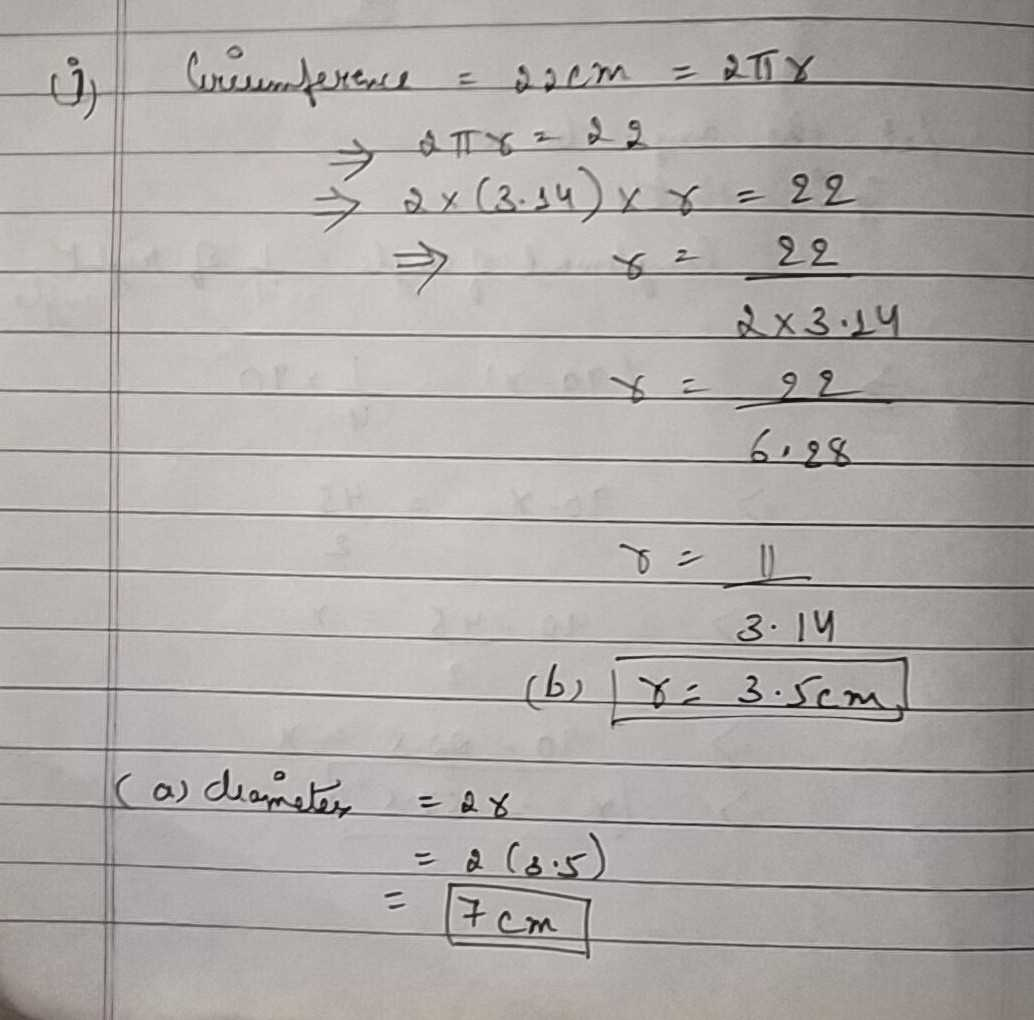 (i) Circumference = 22cm = 2πr
⇒ 2πr = 22
⇒ 2 x (3.14) x r = 22
⇒ r = 22
2 x 3.14
r = 22
6.28
r = 11
3.14
(b) r = 3.5cm
(a) diameter = 2r
= 2 (3.5)
= 7 cm